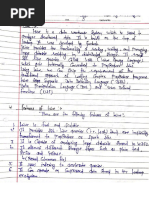 Hive is a data warehouse System which is used to
analyze structured data. It is build on the top of
Hadoop. It was developed by Facebook.
Hive provides the functionality of reading, writing and managing
large datasets residing in distributed storage. It runs
SQL like queries called HQL (Hive Query language)
which gets internally converted to MapReduce jobs.
Using Hive, we can skip the requirement of the traditional
approach of writing complex MapReduce programs.
Hive supports Data Definition Language (DDL),
Data Manipulation Language (DML) and User Defined
Functions (UDF).
Features of Hive :-
These are the following features of Hive :-
Hive is Fast and Scalable
It provides SQL like queries (i.e. HQL) that are implicitly
transformed to MapReduce or Spark jobs.
It is capable of analyzing large datasets stored in HDFS.
It allows different storage types such as plain text,
RCFile and HBase.
It uses indexing to accelerate queries
It can operate on compressed data stored in the Hadoop
ecosystem